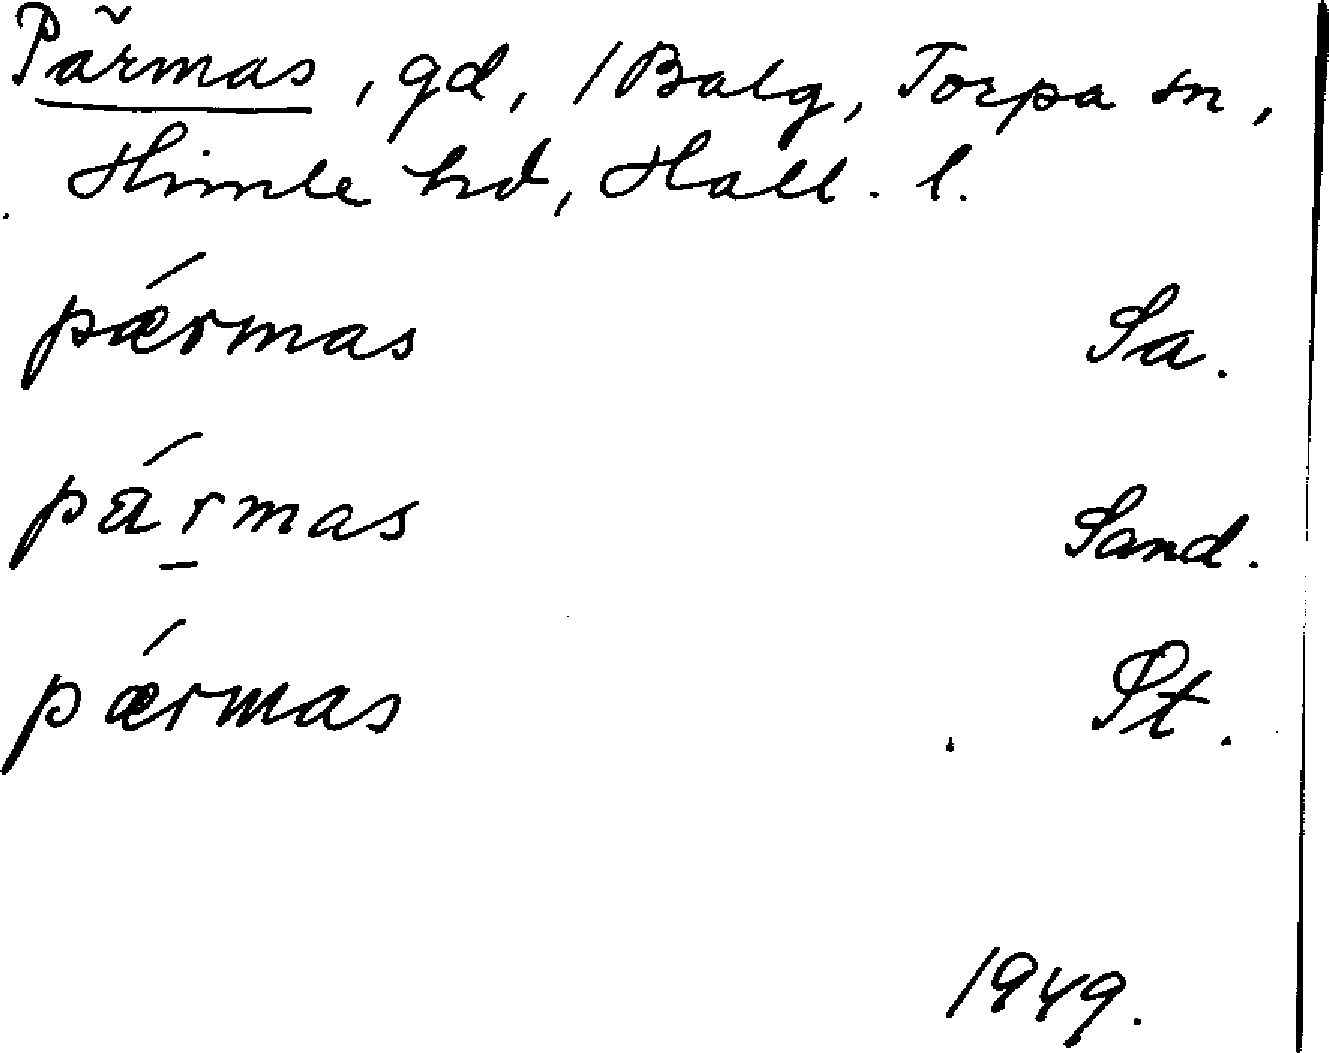 Pärmas, gd, /Balg, Torpa sn,
Himle hd, Hall. l.
pǽrmas Sa.
pá̈rmas Sand.
pǽrmas Pt.
1949.